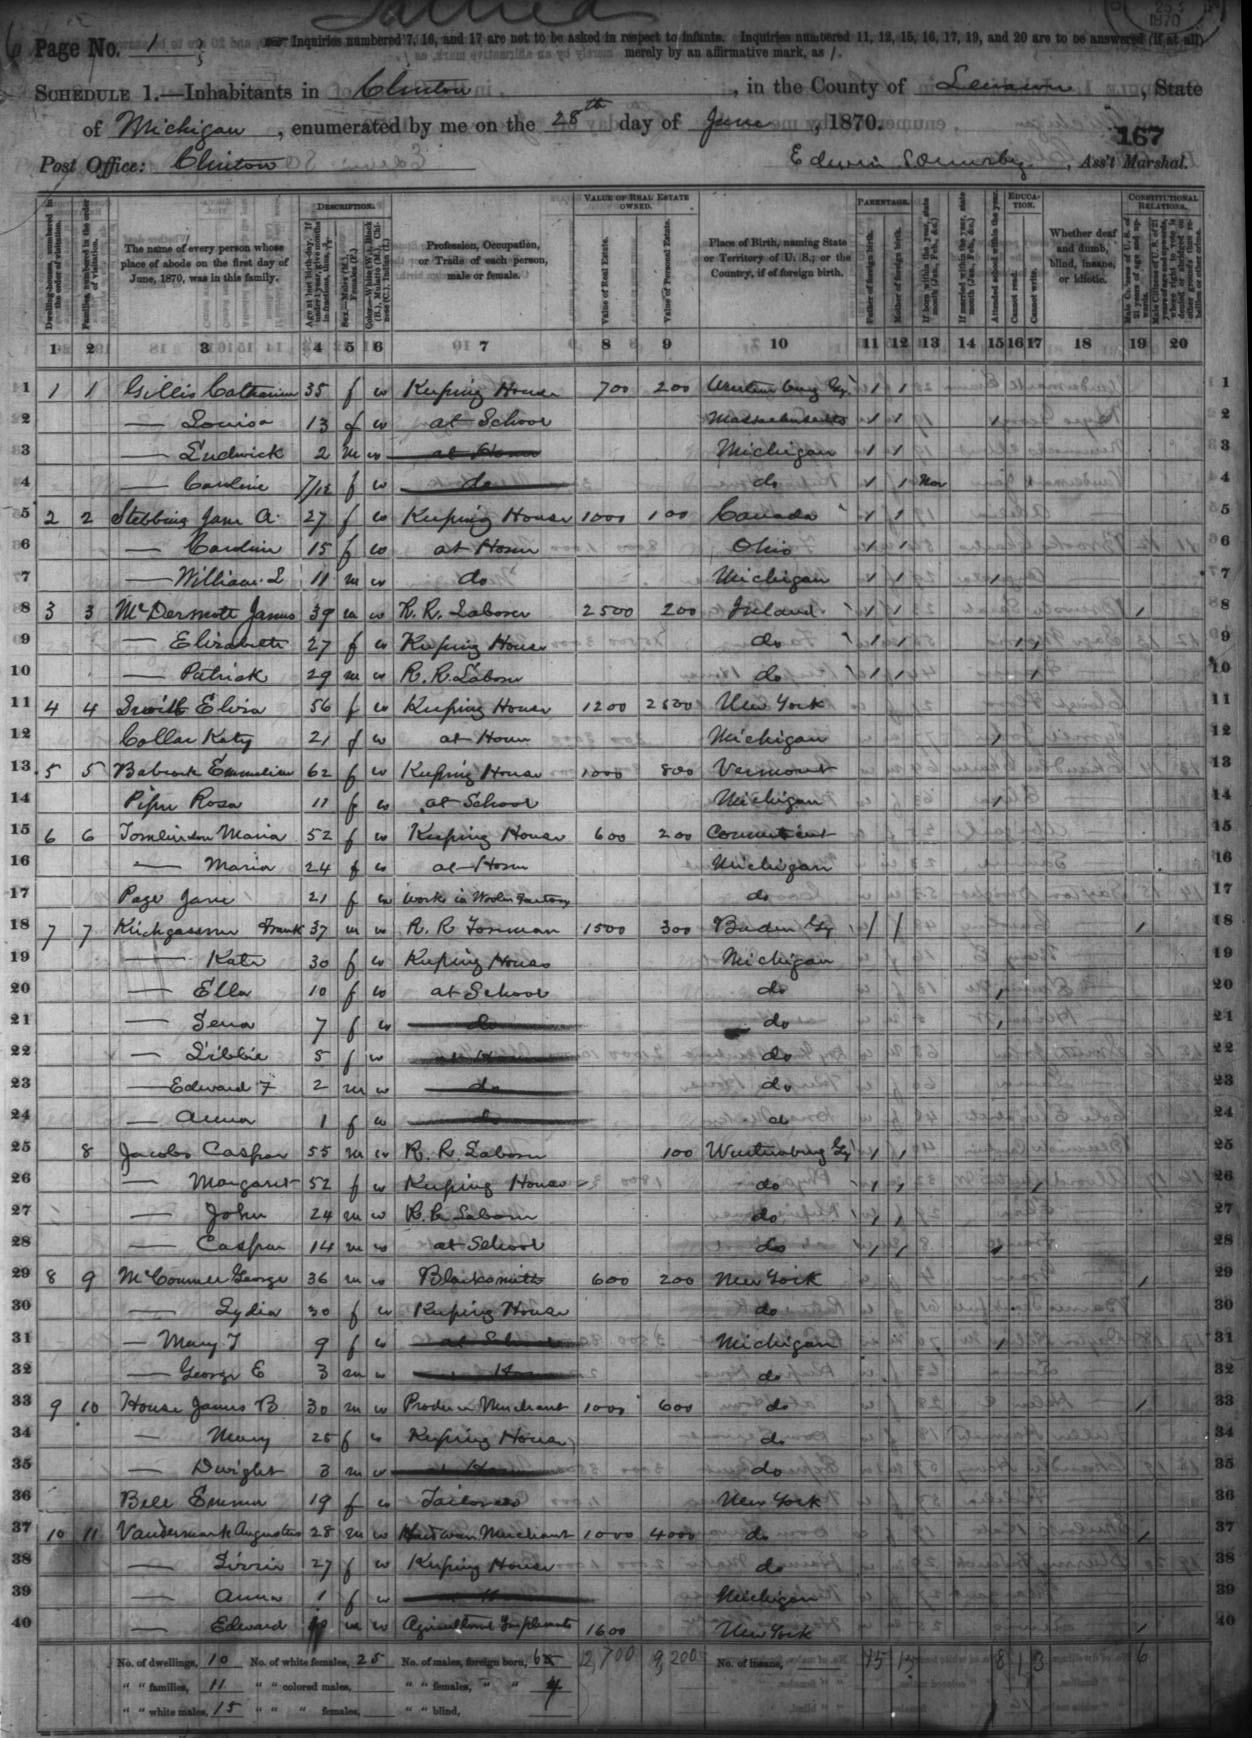 Page No. 1
Inquiries numbered 7, 16, and 17 are not to be asked in respect to infants. Inquiries numbered 11, 12, 15, 16, 17, 19, and 20 are to be answered (if at all) merely by an affirmative mark, as /.
SCHEDULE 1.—Inhabitants in Clinton, in the County of Lenawee, State
of Michigan, enumerated by me on the 28th day of June, 1870.
167
Post Office: Clinton Edwin, Ass't Marshal.
DESCRIPTION. VALUE OF REAL ESTATE OWNED. PARENTAGE. EDUCATION. CONSTITUTIONAL RELATIONS.
Dwelling-houses, numbered in the order of visitation. Families, numbered in the order of visitation. The name of every person whose place of abode on the first day of June, 1870, was in this family. Profession, Occupation, or Trade of each person, male or female. Value of Real Estate. Value of Personal Estate. Place of Birth, naming State or Territory of U. S.; or the Country, if of foreign birth. Father of foreign birth. Mother of foreign birth. If born within the year, state month (Jan., Feb., &c.) If married within the year, state month (Jan., Feb., &c.) Attended school within the year. Cannot read. Cannot write. Whether deaf and dumb, blind, insane, or idiotic.
1 2 3 4 5 6 7 8 9 10 11 12 13 14 15 16 17 18 19 20
1 1 1 Gillis Catharine 35 f w Keeping House 700 200 Wurtemburg Gy / / 1
2 — Louisa 13 f w at School Massachusetts / / / 2
3 — Ludwick 2 m w at Home Michigan / / 3
4 — Caroline 7/12 f w do do / / Nov 4
5 2 2 Stebbins Jane A. 27 f w Keeping House 1000 100 Canada / / 5
6 — Caroline 15 f w at Home Ohio / / 6
7 — William L 11 m w do Michigan / / / 7
8 3 3 McDermott James 39 m w R. R. Laborer 2500 200 Ireland / / / 8
9 — Elizabeth 27 f w Keeping House do / / / / 9
10 — Patrick 29 m w R. R. Laborer do / / / 10
11 4 4 Elvira 56 f w Keeping House 1200 2500 New York 11
12 Collar Katy 21 f w at Home Michigan / 12
13 5 5 Babcock Emmeline 62 f w Keeping House 1000 800 Vermont 13
14 Piper Rosa 11 f w at School Michigan / 14
15 6 6 Tomlinson Maria 52 f w Keeping House 600 200 Connecticut 15
16 — Maria 24 f w at Home Michigan 16
17 Page Jane 21 f w works in Woolen Factory do 17
18 7 7 Kirchgassner Frank 37 m w R. R. Foreman 1500 300 Baden Gy / / / 18
19 — Kate 30 f w Keeping House Michigan 19
20 — Ella 10 f w at School do / 20
21 — Lena 7 f w do do / 21
22 — Libbie 5 f w at Home do 22
23 — Edward F 2 m w do do 23
24 — Anna 1 f w do do 24
25 8 Jacobs Caspar 55 m w R. R. Laborer 100 Wurtemburg Gy / / 25
26 — Margaret 52 f w Keeping House do / / / 26
27 — John 24 m w R. R. Laborer do / / 27
28 — Caspar 14 m w at School do / / / 28
29 8 9 McConnell George 36 m w Blacksmith 600 200 New York / 29
30 — Lydia 30 f w Keeping House do 30
31 — Mary T 9 f w at School Michigan / 31
32 — George E 3 m w Home do 32
33 9 10 House James B 30 m w Produce Merchant 1000 600 do / 33
34 — Mary 25 f w Keeping House do 34
35 — Dwight 3 m w at Home do 35
36 Bell Emma 19 f w Tailoress New York 36
37 10 11 Vandermark Augustus 28 m w Hardware Merchant 1000 4000 do / 37
38 — Lizzie 27 f w Keeping House do 38
39 — Anna 1 f w Michigan 39
40 — Edward m w Agricultural Implements 1600 New York / 40
No. of dwellings, 10 No. of white females, 25 No. of males, foreign born, 6 12,700 9,200 No. of insane, 15 15 8 1 3 6
" " families, 11 " " colored males, " " females, " " 4
" " white males, 15 " " " females, " " blind,